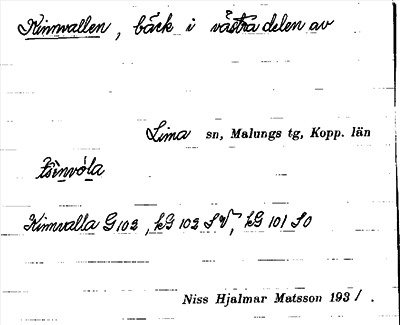 Kinnvallen, bäck i västra delen av
Lima sn, Malungs tg, Kopp. län
Kinnvalla G 102, kG 102 SV, kG 101 SO
Niss Hjalmar Matsson 1931.